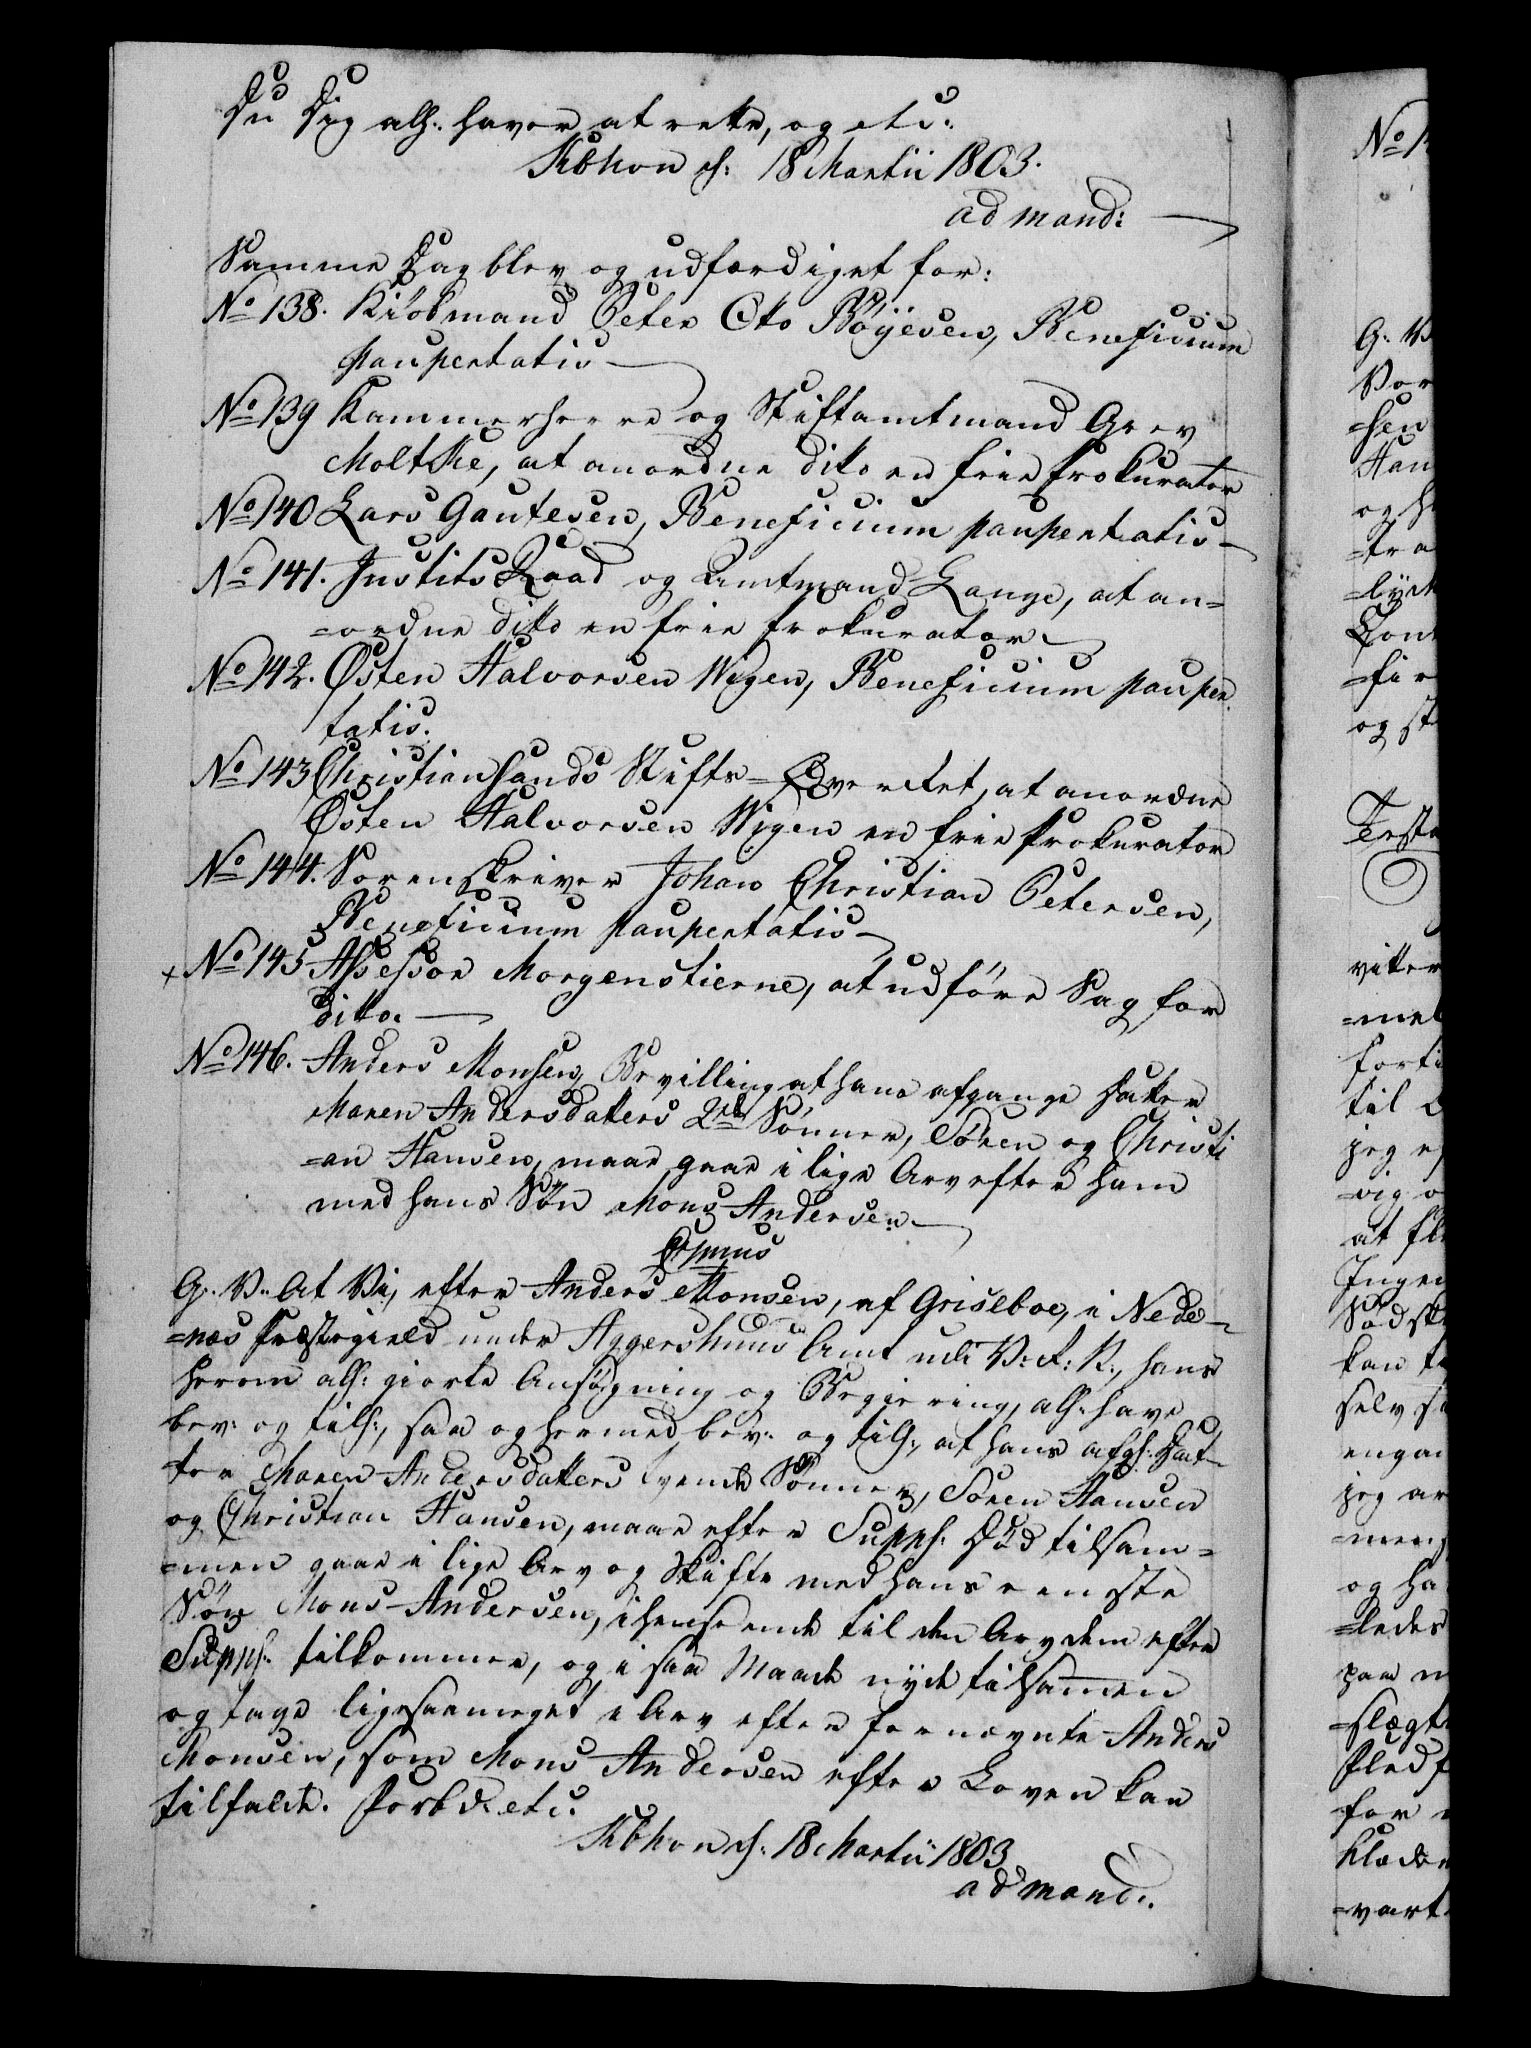 Du Dig alh: haver at rette, og etc:
Kbhvn d: 18 Martii 1803.
ad mand:
Samme Dag blev og udfærdiget for:
No 138. Kiöbmand Peter Otto Böÿesen, Beneficium
paupertatis
No 139 Kammerherre og Stiftamtmand Grev
Moltke, at anordne dito en frie Prokurator
No 140 Lars Gautesen, Beneficium paupertatis
No 141. Justits Raad og Amtmand Lange, at an=
=ordne dito en frie Prokurator
No 142. Østen Halvorsen Wigen, Beneficium pauper
tatis.
No 143 Christiansands Stifts=Øvrighet, at anordne
Østen Halvorsen Wigen en frie Prokurator
No 144. Sorenskriver Johan Christian Petersen,
Beneficium paupertatis
+ No 145 Assessor Morgenstierne, at udföre Sag for
dito.
No 146. Anders Monsen, Bevilling at hans afgangne Datter
Maren Andersdatters 2de Sönner, Sören og Christi
=an Hansen, maae gaae i lige Arv efter ham
med hans Sön Mons Andersen
G: V: At Vi, efter Anders Monsen, af Griseboe, i Nede=
=næs Præstegield under Aggershuus Amt udi V: R: N:, hans
herom alh: giorte Ansögning og Begiering, alh: have
bev: og tilh:, saa og hermed bev: og tilh:, at hans afg: Dat=
ter Maren Andersdatters tvende Sönner, Sören Hansen
og Christian Hansen, maae efter Suppl: Död tilsam=
=men gaae i lige Arv og Skifte med hans eeneste
Sön Mons Andersen, i henseende til den Arv dem efter
Suppl: tilkommer, og i saa Maade nyde tilsammen
og tage ligesaameget i Arv efter fornævnte Anders
Monsen, som Mons Andersen efter Loven kan
tilfalde. Forbd: etc:
Kbhvn d: 18 Martii 1803
ad mand:.